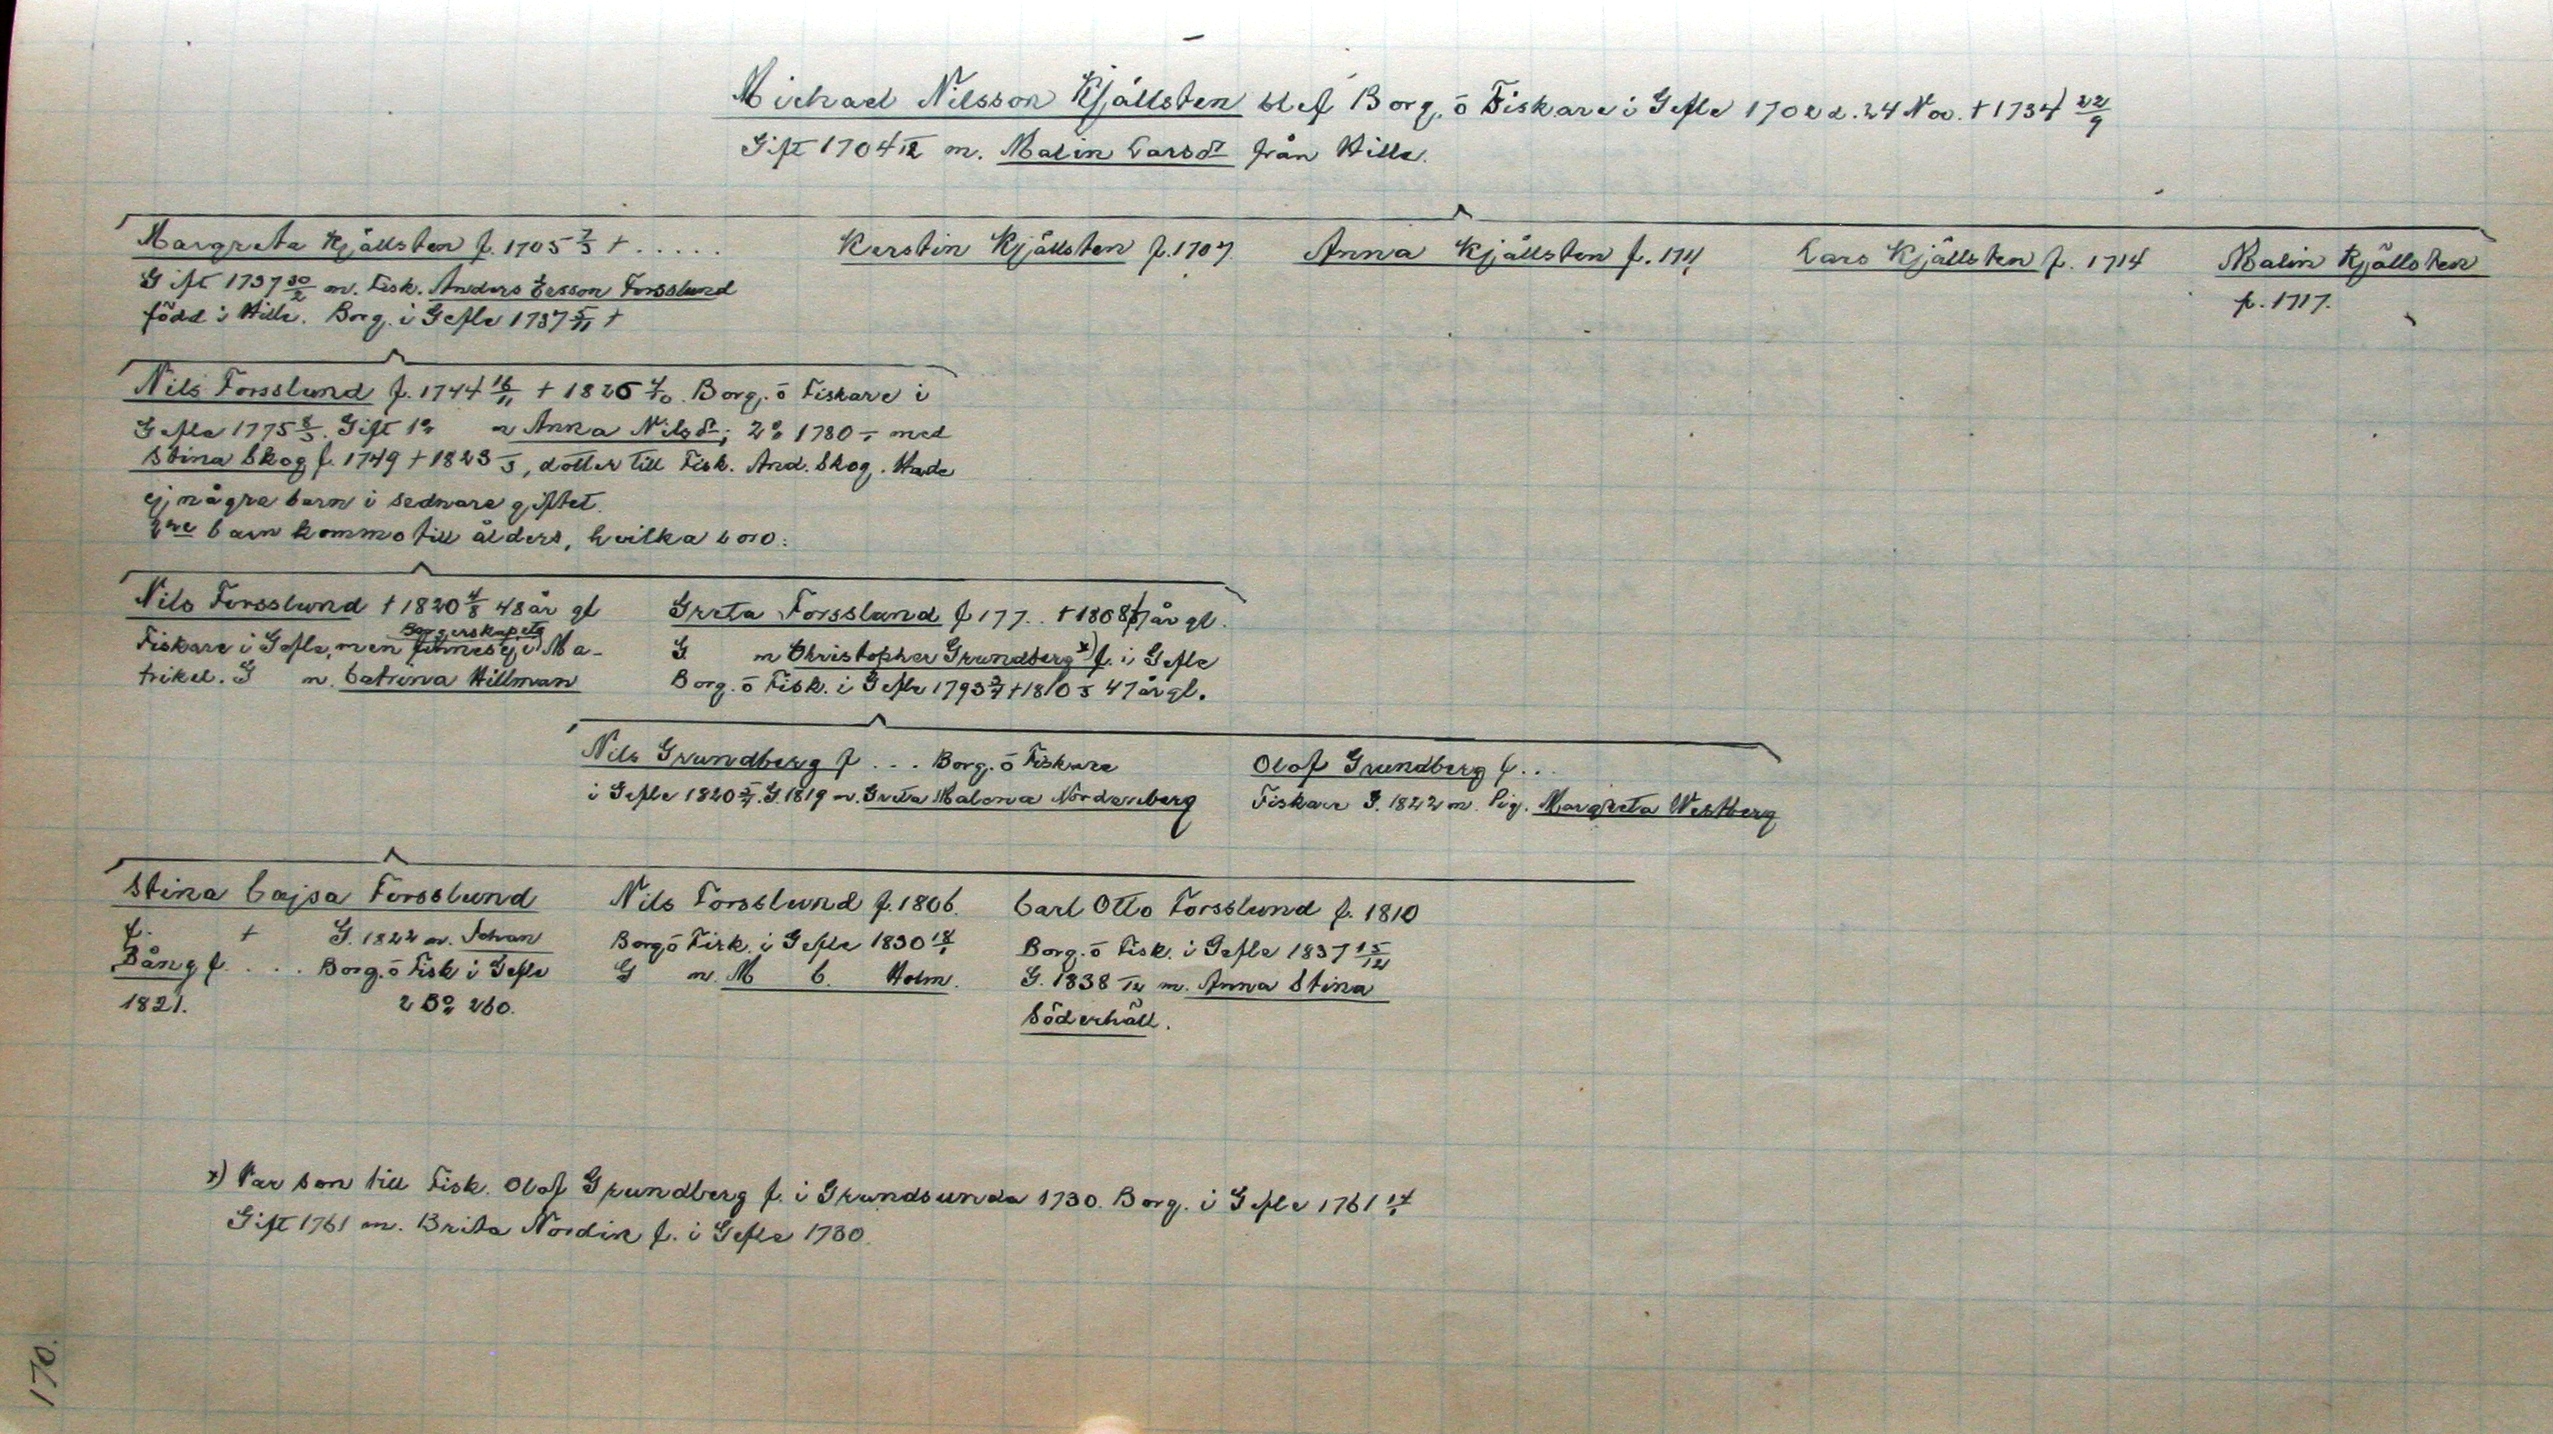 Michael Nilsson Kjällsten blef Borg. ō Fiskare i Gefle 1702 d. 24 Nov. † 1734 22/9
Gift 1704 m. Malin Larsdr från Hille.
Margreta Kjällsten f. 1705 † . . . . .
Gift 1737 30/2 m. Fisk. Anders Ersson Forsslund
född i Hille. Borg. i Gefle 1737 5/11 †
Kerstin Kjällsten f. 1707.
Anna Kjällsten f. 1711
Lars Kjällsten f. 1714
Malin Kjällsten
f. 1717.
Nils Forsslund f. 1744 16/11 † 1826 4/10. Borg. ō Fiskare i
Gefle 1775 8/5. Gift 1o m Anna Nilsdr; 2o 1780 - med
Stina Skog f. 1749 † 1823 -/3, dotter till Fisk. And. Skog. Hade
ej några barn i sednare giftet.
2ne barn kommo till ålders, hvilka voro:
Nils Forsslund † 1820 4/8 48 år gl
Borgerskapets
Fiskare i Gefle, men finnes ej i Ma-
trikel. G m. Catrina Hillman
Greta Forsslund f 177. . † 1808 år gl.
G m Christopher Grundberg x) f. i Gefle
Borg. ō Fisk. i Gefle 1793 † 1810 47 år gl.
Nils Grundberg f . . . Borg. ō Fiskare
i Gefle 1820. G. 1819 m. Greta Malena Nordenberg
Olof Grundberg f. . .
Fiskare G. 1822 m. Pig. Margreta Westberg
Stina Cajsa Forsslund
f. † G. 1822 m. Johan
Bång f. . . . Borg. ō Fisk i Gefle
1821. 2 Bo 260.
Nils Forsslund f. 1806.
Borg ō Fisk. i Gefle 1830
G m. M C. Holm.
Carl Otto Forsslund f. 1810
Borg. ō Fisk. i Gefle 1837 15/12
G. 1838 -/12 m. Anna Stina
Söderhäll.
x) Var son till Fisk. Olof Grundberg f. i Grundsunda 1730. Borg. i Gefle 1761
Gift 1761 m. Brita Nordin f. i Gefle 1730.
170.